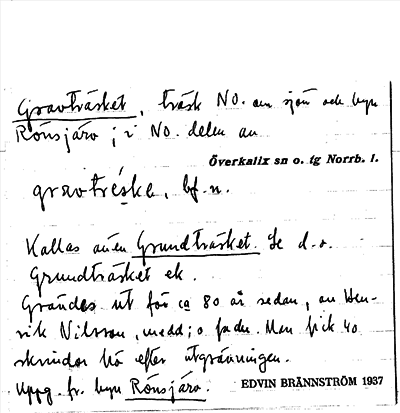 Gravträsket, träsk NO. om sjön och byn
Rönsjärv; i NO. delen av
Överkalix sn o. tg Norrb. l.
gravtréska, bf. n.
Kallas även Grundträsket. Se d. o.
Grundträsket ek.
Grävdes ut för ca 80 år sedan, av Hen-
rik Nilsson, medd:s fader. Man fick 40
skrindor hö efter utgrävningen.
Uppg. fr. byn Rönsjärv.
EDVIN BRÄNNSTRÖM 1937